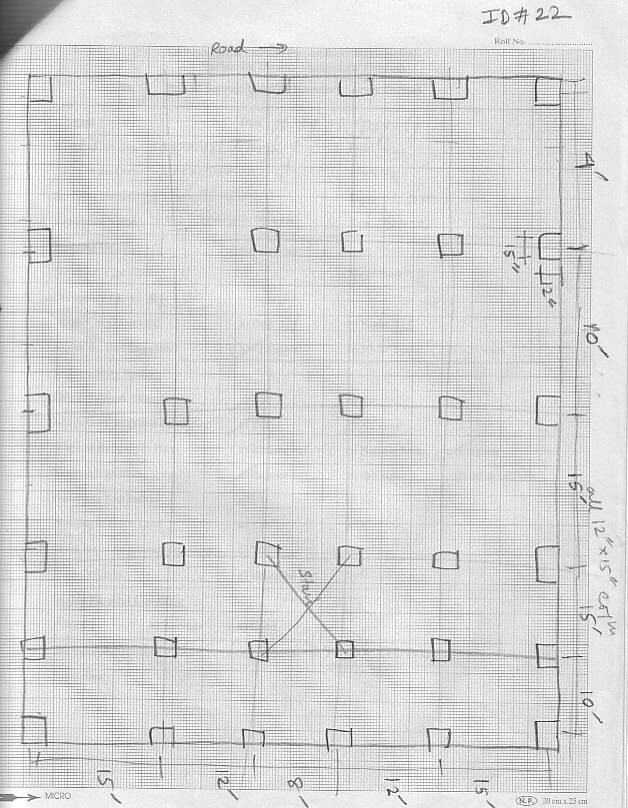 ID # 22
Roll No.
Road →
4'
15"
12"
10'
15'
all 12" x 15" colm
Stair
15'
10'
15' 12' 8' 12' 15'
MICRO
N.P. 20 cm x 25 cm